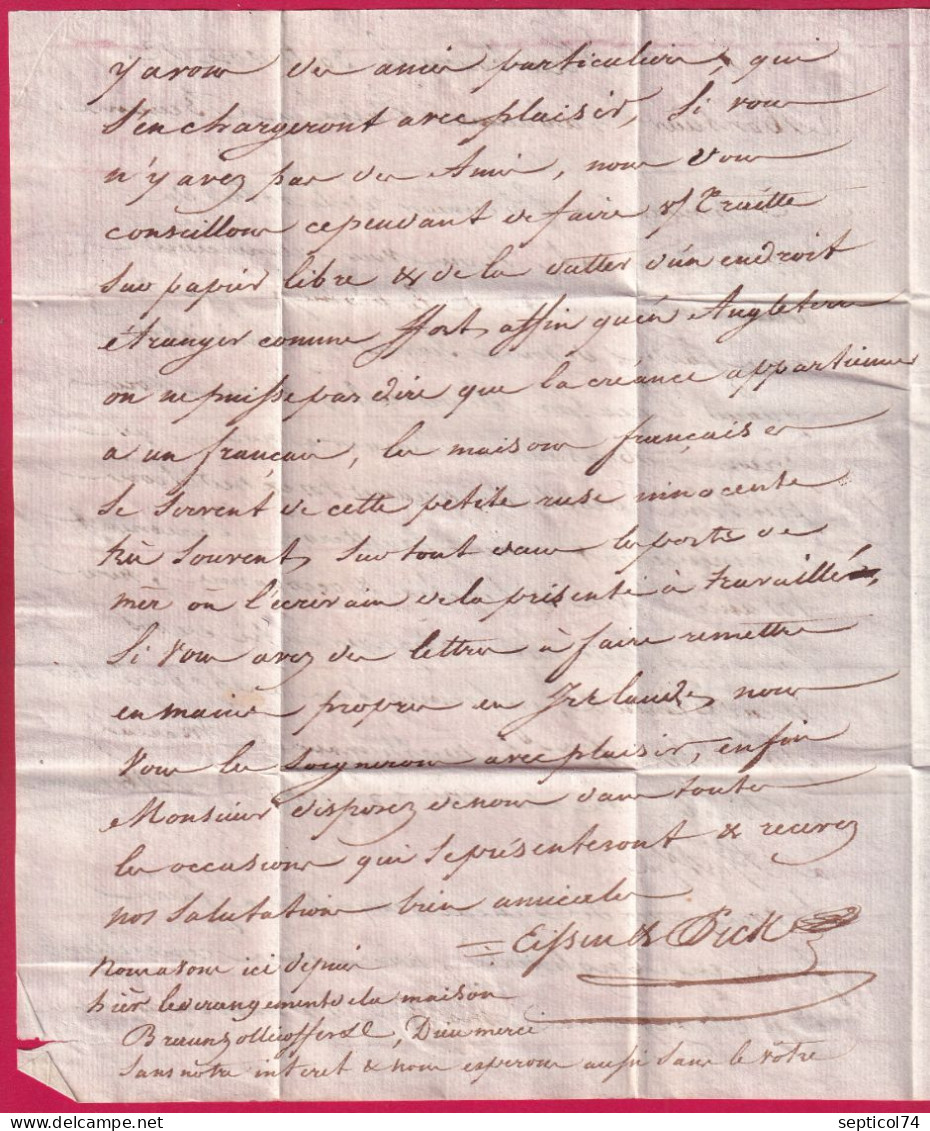 y avons des amis particuliers, qui
s'en chargeront avec plaisir, Si vous
n'y avez pas des Amis, nous vous
conseillons cependant de faire v/ Traitte
sur papier libre & de la datter d'un endroit
étranger comme ffort, affin qu'en Angleterre
on ne puisse pas dire que la créance appartienne
à un français, les maisons françaises
se servent de cette petite ruse innocente
très souvent, surtout dans les ports de
mèr où l'écrivain de la présente à travaillé,
Si vous avez des lettres à faire remettre
en mains propres en Irlande, nous
vous les soignerons avec plaisir, enfin
Monsieur disposez de nous dans toutes
les occasions qui se présenteront & recevez
nos salutations bien amicales
Eissen & Pick
Nous avons ici depuis
hièr le derangement de la maison
Dieu merci
sans nôtre interet & nous esperons aussi sans le vôtre
septicol74